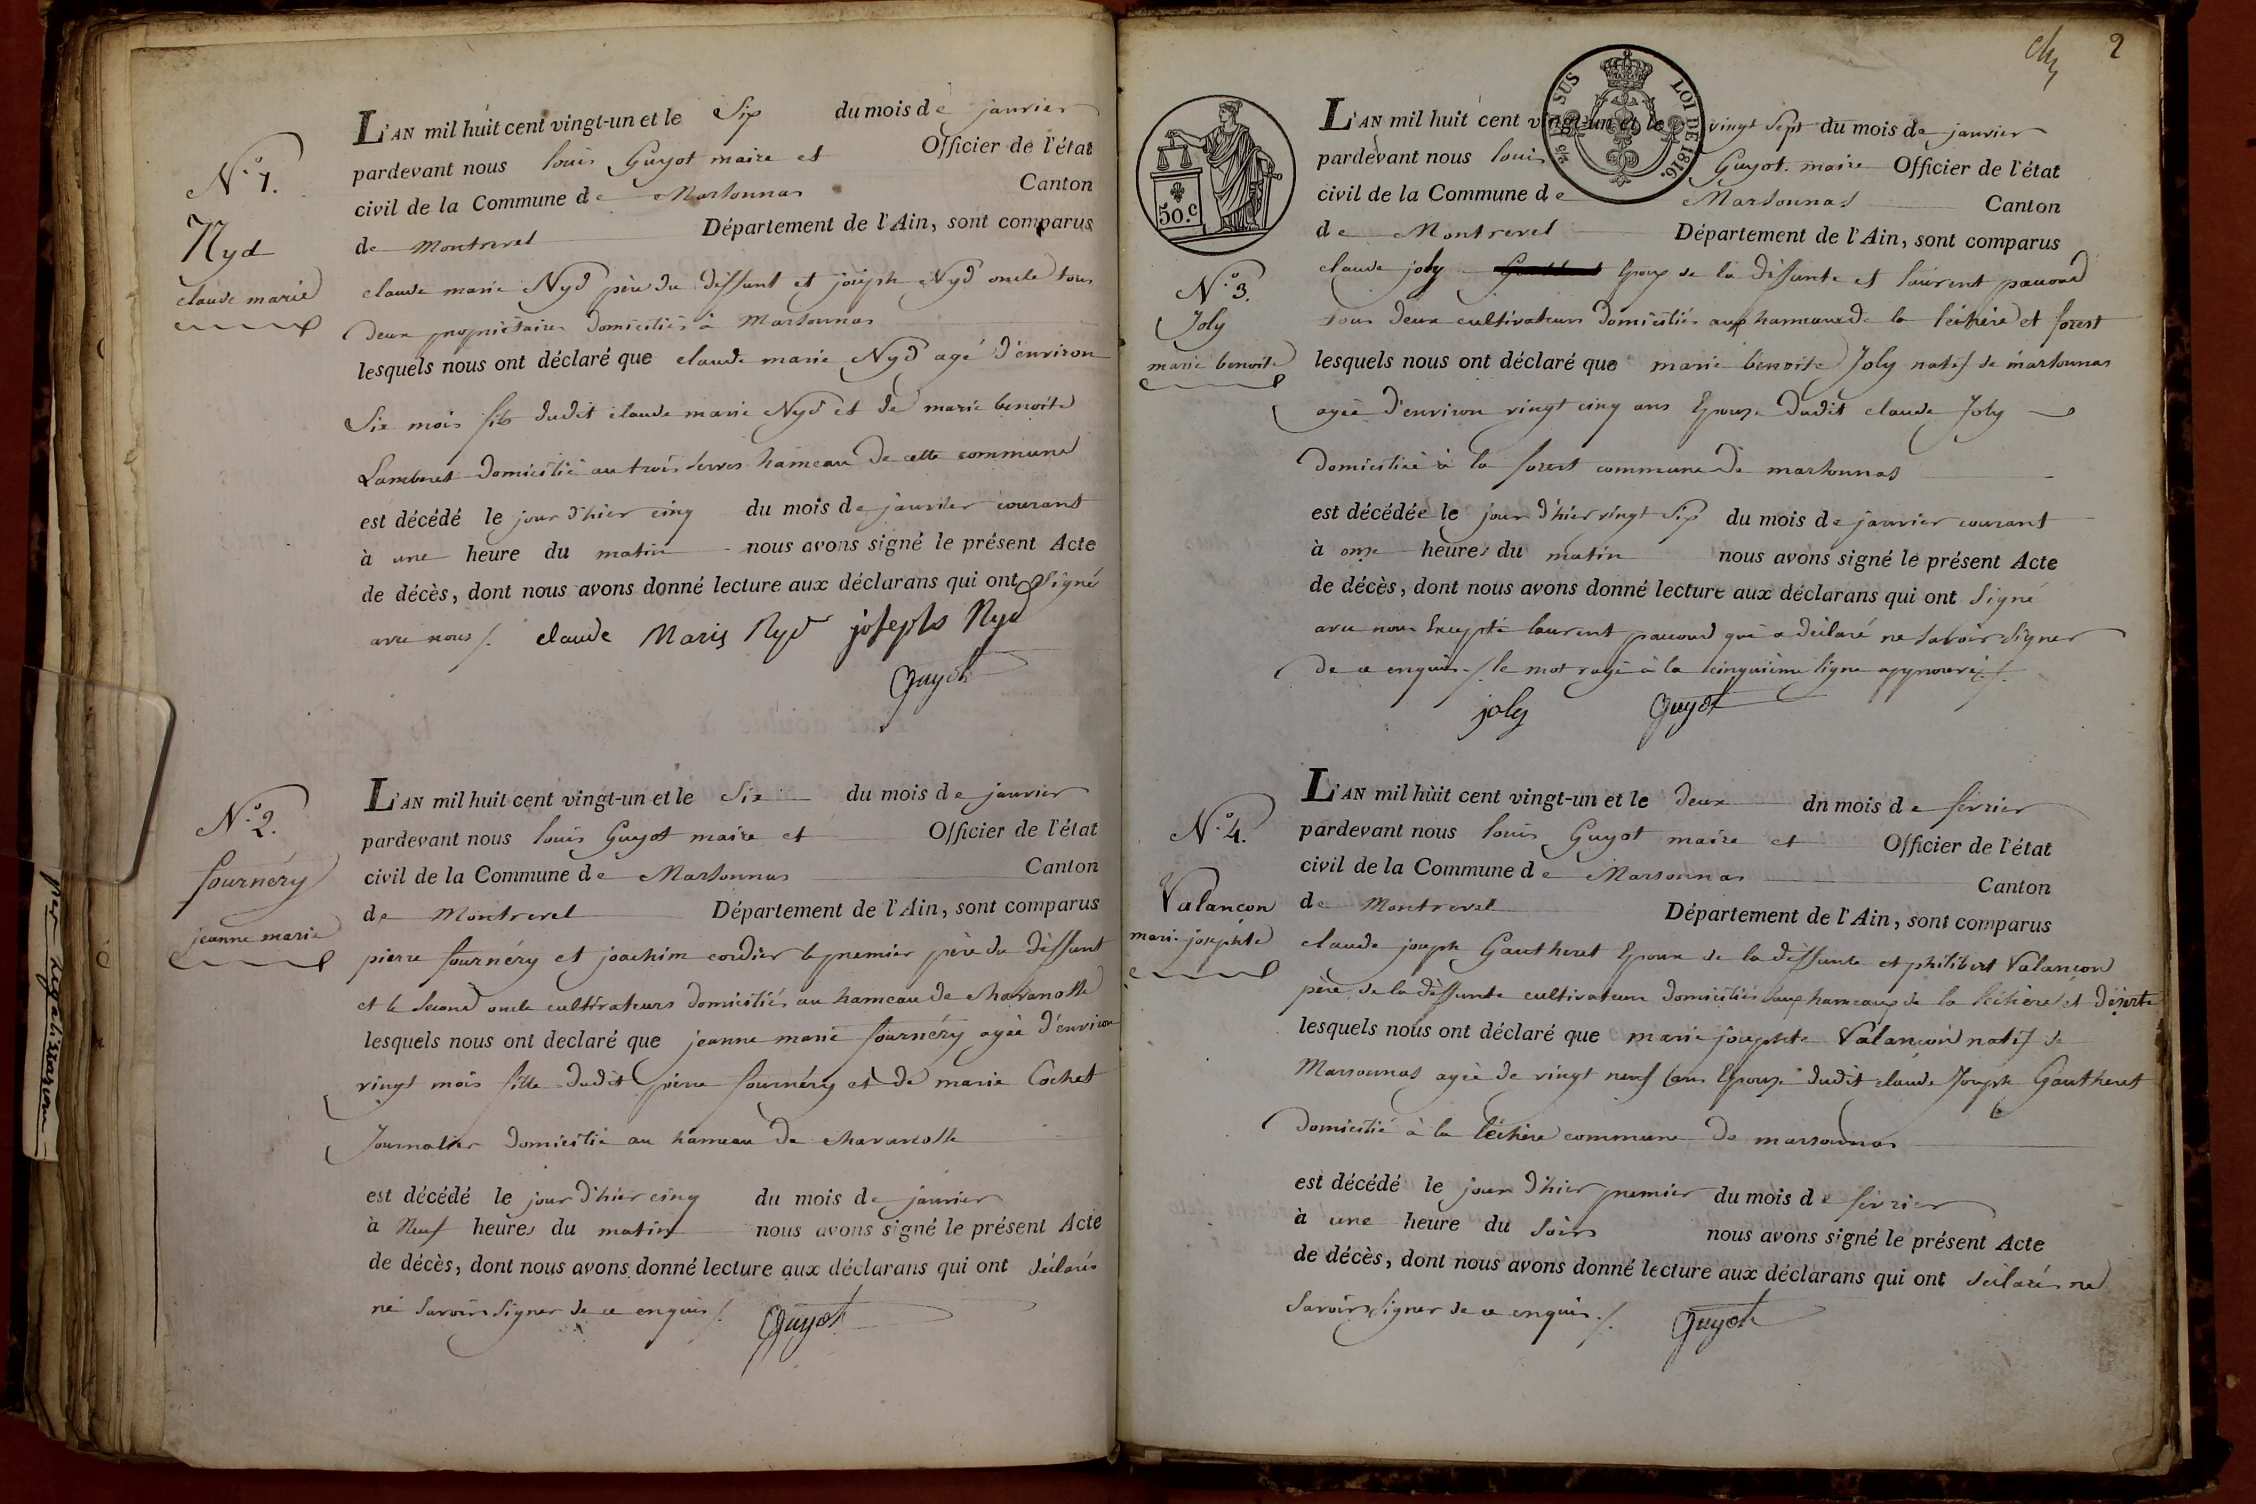 N.o 1.
Nyd
claude marie
L'AN mil huit cent vingt-un et le Six du mois de janvier
pardevant nous louis Guyot maire et Officier de l'état
civil de la Commune de Marsonnas Canton
de Montrevel Département de l'Ain, sont comparus
claude marie Nyd père du deffunt et joseph Nyd oncle tous
deux propriétaires domiciliés à Marsonnas
lesquels nous ont déclaré que claude marie Nyd agé d'environ
Six mois fils dudit claude marie Nyd et de marie benoite
Lamberet domicilié au trois serves hameau de cette commune
est décédé le jour d'hier cinq du mois de janvier courant
à une heure du matin nous avons signé le présent Acte
de décès, dont nous avons donné lecture aux déclarans qui ont Signé
avec nous /. claude Marie Nyd joseph Nyd
Guyot
N.o 2.
fournéry
jeanne marie
L'AN mil huit cent vingt-un et le Six du mois de janvier
pardevant nous louis Guyot maire et Officier de l'état
civil de la Commune de Marsonnas Canton
de Montrevel Département de l'Ain, sont comparus
pierre fournéry et joachim cordier le premier père du déffunt
et le Second oncle cultivateurs domiciliés au hameau de chavanosse
lesquels nous ont declaré que jeanne marie fournéry agée d'environ
vingt mois fille dudit pierre fournéry et de marie Cochet
Journalier domicilié au hameau de chavanosse
est décédé le jour d'hier cinq du mois de janvier
à Neuf heures du matin nous avons signé le présent Acte
de décès, dont nous avons donné lecture aux déclarans qui ont déclarés
ne Savoir Signer de ce enquis /. Guyot
2
SUS LOI DE 1816.
50.c
N.o 3.
Joly
marie benoite
L'AN mil huit cent vingt-un et le vingt Sept du mois de janvier
pardevant nous louis Guyot maire Officier de l'état
civil de la Commune de Marsonnas Canton
de Montrevel Département de l'Ain, sont comparus
claude joly Epoux de la déffunte et laurent pauoud
tous deux cultivateurs domiciliés aux hameaux de la léchère et forest
lesquels nous ont déclaré que marie benoite Joly natif de marsonnas
agée d'environ vingt cinq ans Epouse dudit claude Joly
domiciliée à la forest commune de marsonnas
est décédée le jour d'hier vingt Six du mois de janvier courant
à onze heures du matin nous avons signé le présent Acte
de décès, dont nous avons donné lecture aux déclarans qui ont Signé
avec nous Excepté laurent pauoud qui a déclaré ne Savoir Signer
de ce enquis ./. le mot rayé à la cinquième ligne approuvé ./.
joly Guyot
N.o 4.
Valançon
marie josephte
L'AN mil huit cent vingt-un et le deux du mois de février
pardevant nous louis Guyot maire et Officier de l'état
civil de la Commune de Marsonnas Canton
de Montrevel Département de l'Ain, sont comparus
claude joseph Gautheret Epoux de la déffunte et philibert Valançon
père de la déffunte cultivateurs domiciliés aux hameaux de la léchère et déserte
lesquels nous ont déclaré que marie josephte Valançon natif de
Marsonnas agée de vingt neuf ans Epouse dudit claude Joseph Gautheret
domicilié à la léchère commune de marsonnas
est décédé le jour d'hier premier du mois de février
à une heure du Soir nous avons signé le présent Acte
de décès, dont nous avons donné lecture aux déclarans qui ont déclaré ne
Savoir Signer de ce enquis ./. Guyot